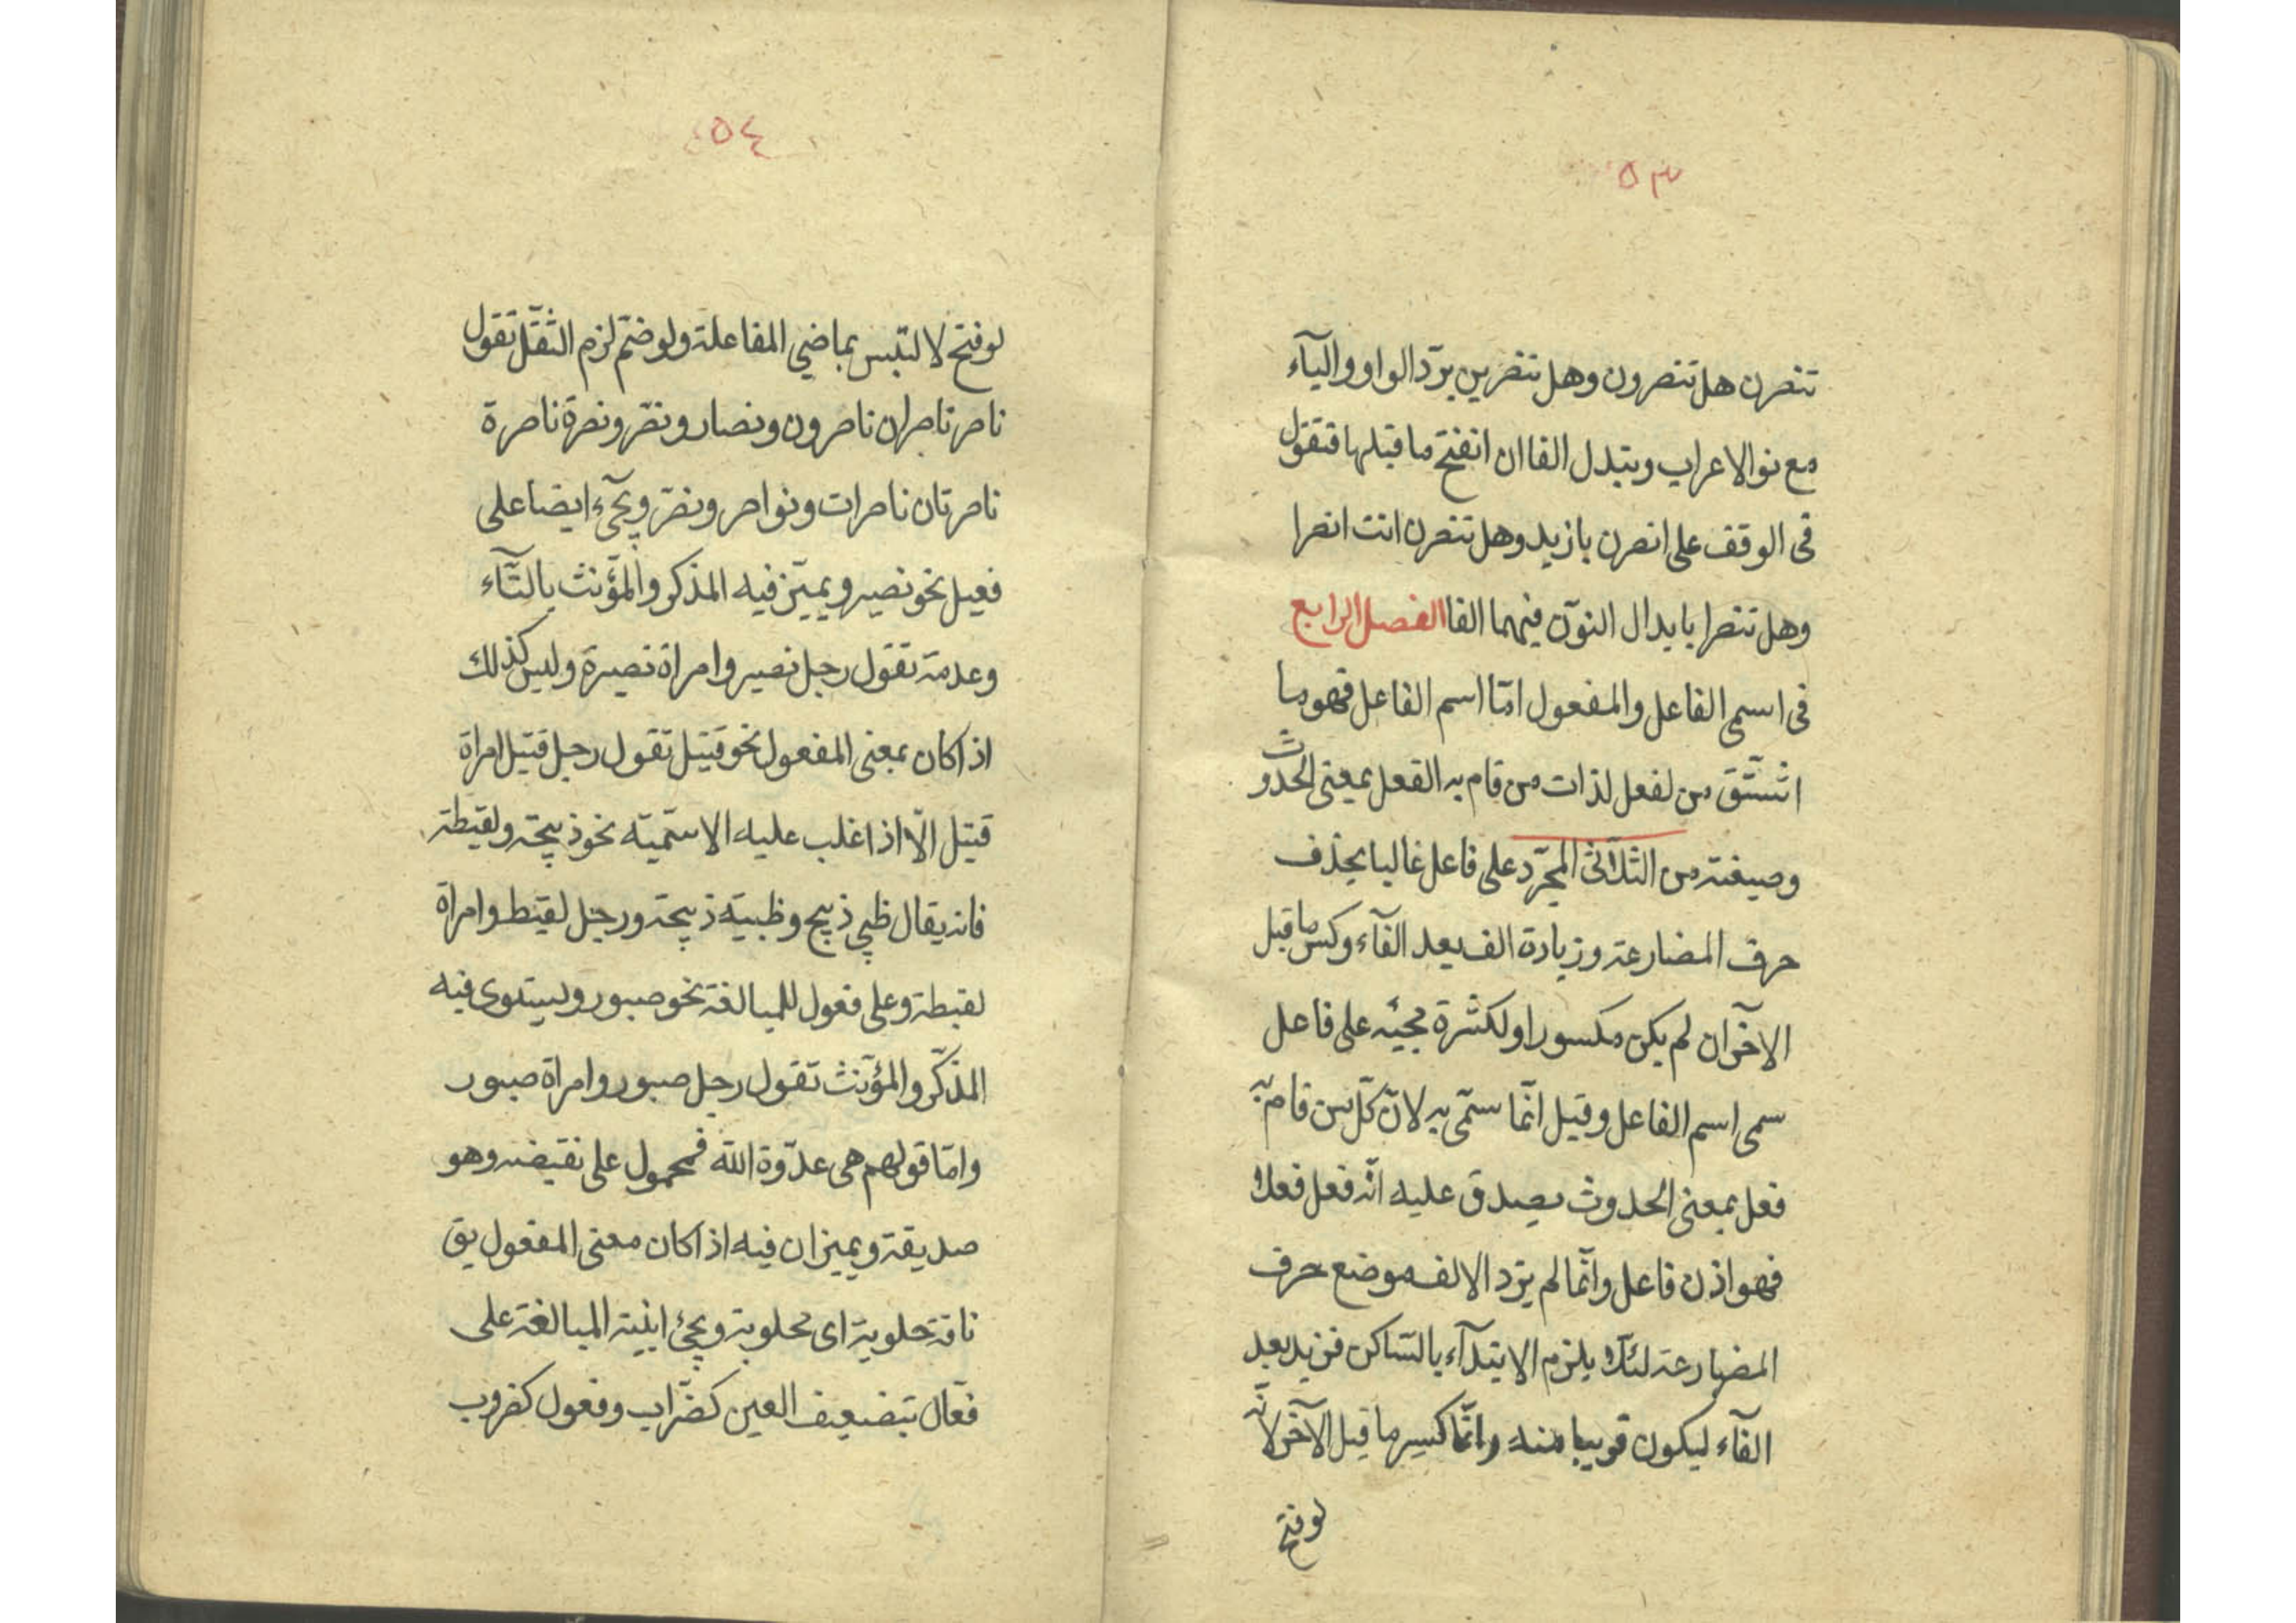 ٥٣
تنصرن هل تنصرون وهل تنصرين بردّ الواو واليآء
مع نو الاعراب ويتبدل الفا ان انفتح ما قبلها فتقول
فى الوقف على انصرن يا زيد وهل تنصرن انت انصرا
وهل تنصرا بابدال النون فيهما الفا الفصل الرابع
فى اسمى الفاعل والمفعول امّا اسم الفاعل فهو ما
اشتقّ من لفعل لذات من قام به الفعل بمعنى الحدوث
وصيغته من الثلاثى المجرّد على فاعل غالبا بحذف
حرف المضارعة وزيادة الف بعد الفآء وكسر ما قبل
الآخر ان لم يكن مكسورا ولكثرة مجيئه على فاعل
سمى اسم الفاعل وقيل انّما سمّى به لانّ كلّ من قام به
فعل بمعنى الحدوث يصدق عليه انّه فعل فعلا
فهو اذن فاعل وانّما لم يزد الالف موضع حرف
المضارعة لئلّا يلزم الابتدآء بالسّاكن فزيد بعد
الفآء ليكون قريبا منه وانّما كسر ما قبل الآخر لانّه
لو فتح
٥٤
لو فتح لالتبس بماضى المفاعلة ولو ضمّ لزم الثقل تقول
ناصر ناصران ناصرون ونصار ونصّر ونصرة ناصرة
ناصرتان ناصرات ونواصر ونصّر ويجىء ايضا على
فعيل نحو نصير ويميّز فيه المذكر والمؤنث بالتّآء
وعدمه تقول رجل نصير وامراة نصيرة وليس كذلك
اذا كان بمعنى المفعول نحو قتيل تقول رجل قتيل امراة
قتيل الّا اذا غلب عليه الاسميّة نحو ذبيحة ولقيطة
فانه يقال ظبى ذبيح وظبية ذبيحة ورجل لقيط وامراة
لقيطة وعلى فعول للمبالغة نحو صبور ويستوى فيه
المذكّر والمؤنّث تقول رجل صبور وامراة صبور
وامّا قولهم هى عدوّة الله فمحمول على نقيضه وهو
صديقة ويميزان فيه اذا كان معنى المفعول يق
ناقة حلوبة اى محلوبة ويجئ ابنية المبالغة على
فعّال بتضعيف العين كضرّاب وفعول كضروب